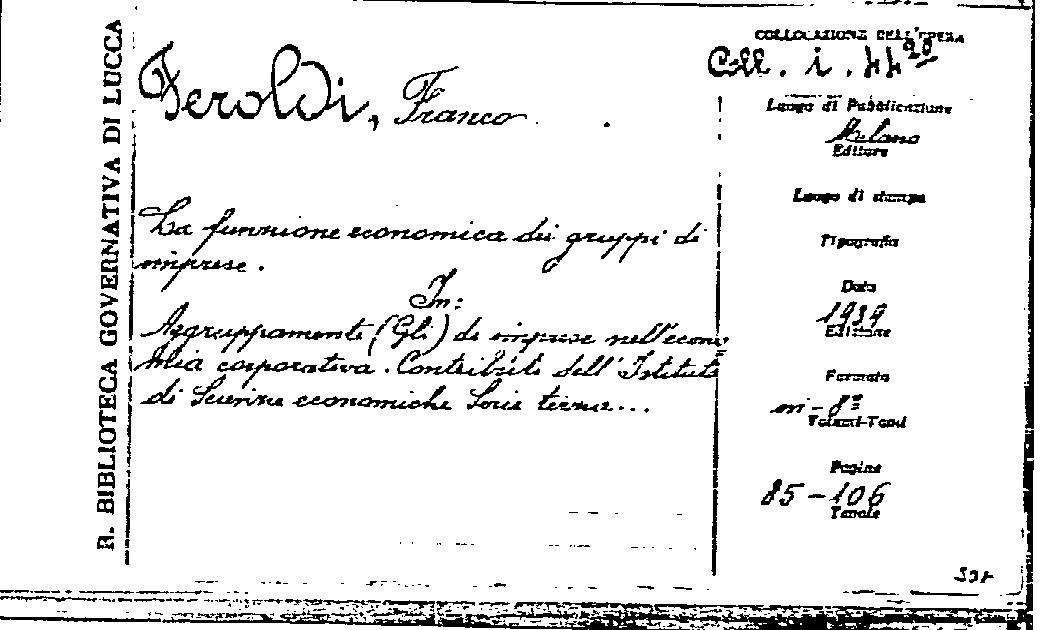 R. BIBLIOTECA GOVERNATIVA DI LUCCA
Feroldi, Franco
La funzione economica dei gruppi di
imprese.
In:
Aggruppamenti (Gli) di imprese nell'econo=
mia corporativa. Contributi dell'Istituto
di Scienze economiche Serie terza...
COLLOCAZIONE DELL'OPERA
Coll. i. 44 20
Luogo di Pubblicazione
Milano
Editore
Luogo di stampa
Tipografia
Data
1939
Edizione
Formato
in-8º
Volumi-Tomi
Pagine
85-106
Tavole